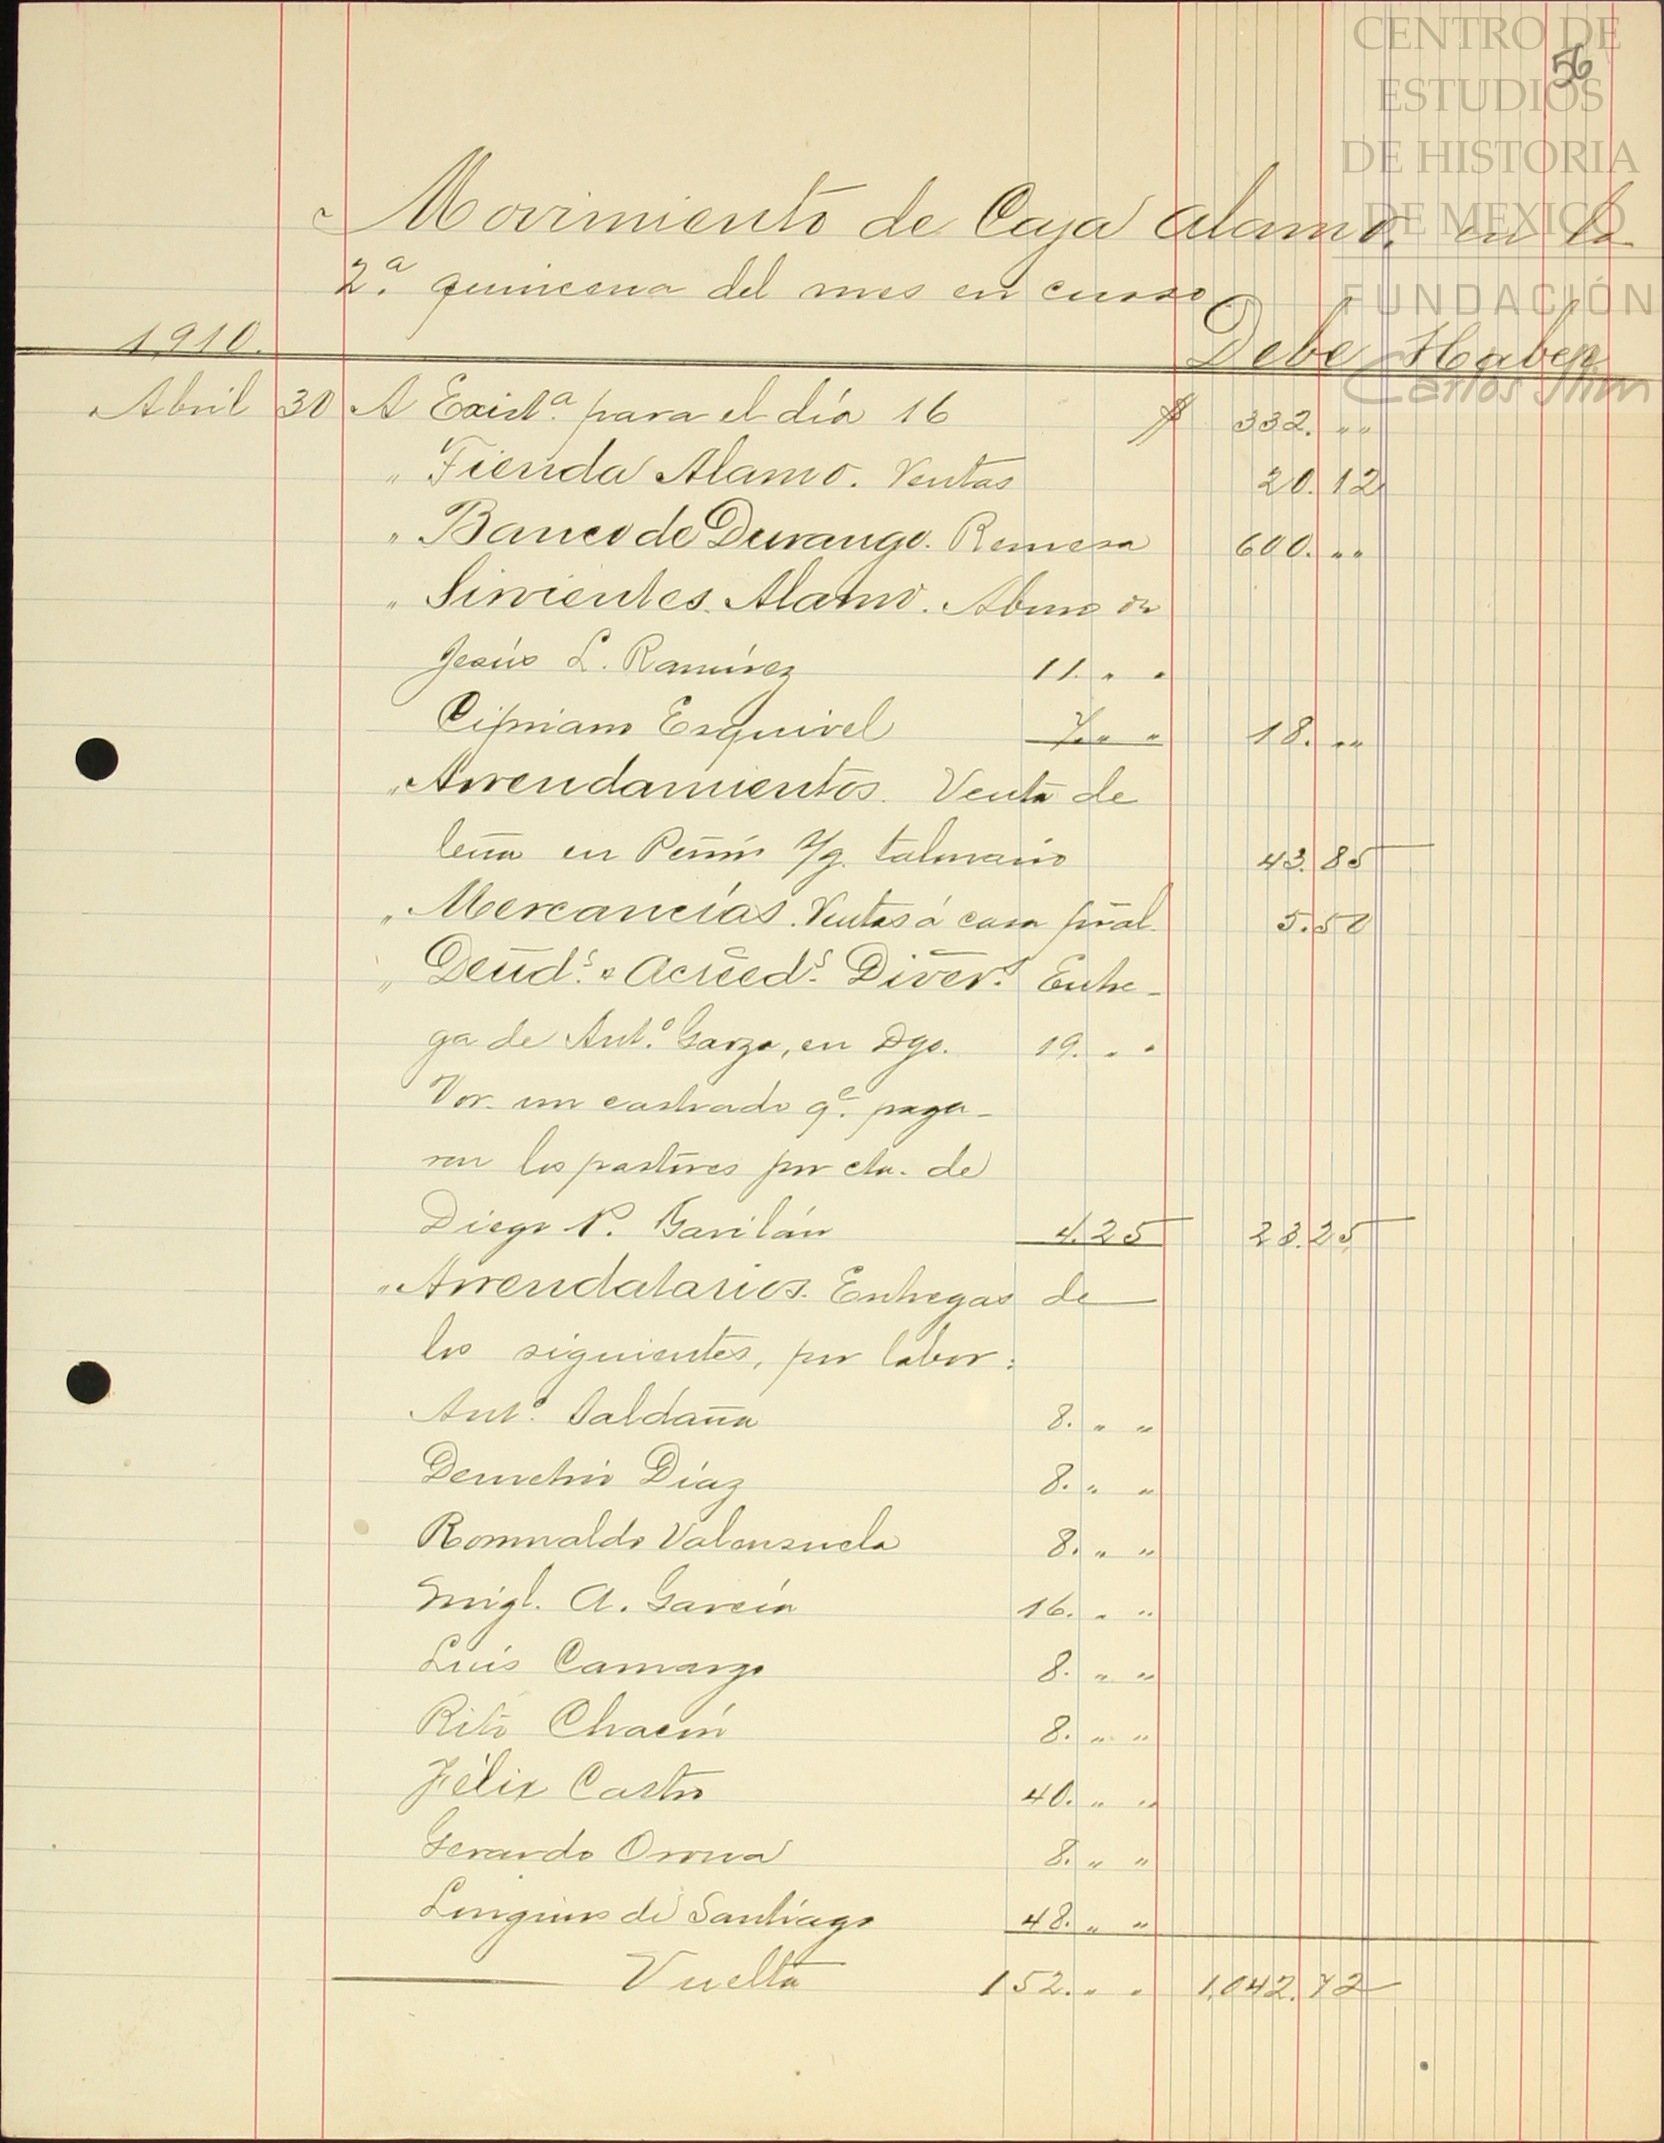 CENTRO DE
56
ESTUDIOS
DE HISTORIA
DE MEXICO
FUNDACIÓN
Carlos Slim
Movimiento de Caja Alamo, en la
2.ª quincena del mes en curso.
1910. Debe Haber
Abril 30 A Exist.ª para el día 16 $ 332. " "
" Tienda Alamo. Ventas 20.12
" Banco de Durango. Remesa 600. " "
" Sirvientes Alamo. Abono de
Jesús L. Ramírez 11. " "
Cipriano Esquivel 7. " " 18. " "
" Arrendamientos. Venta de
leña en Peñón y g. talmario 43.85
" Mercancías. Ventas á casa pral. 5.50
" Deud.s & Acreed.s Divers. Entre-
ga de Ant.o Garza, en Dgo. 19. " "
Vor. un castrado q.e paga-
ron los pastores por cta. de
Diego P. Gavilán 4.25 23.25
" Arrendatarios. Entregas de
los siguientes, por labor:
Ant.o Saldaña 8. " "
Demetrio Díaz 8. " "
Romualdo Valenzuela 8. " "
Migl. A. García 16. " "
Luis Camargo 8. " "
Rito Chacón 8. " "
Félix Castro 40. " "
Gerardo Orona 8. " "
Longinos de Santiago 48. " "
Vuelta 152. " " 1,042.72